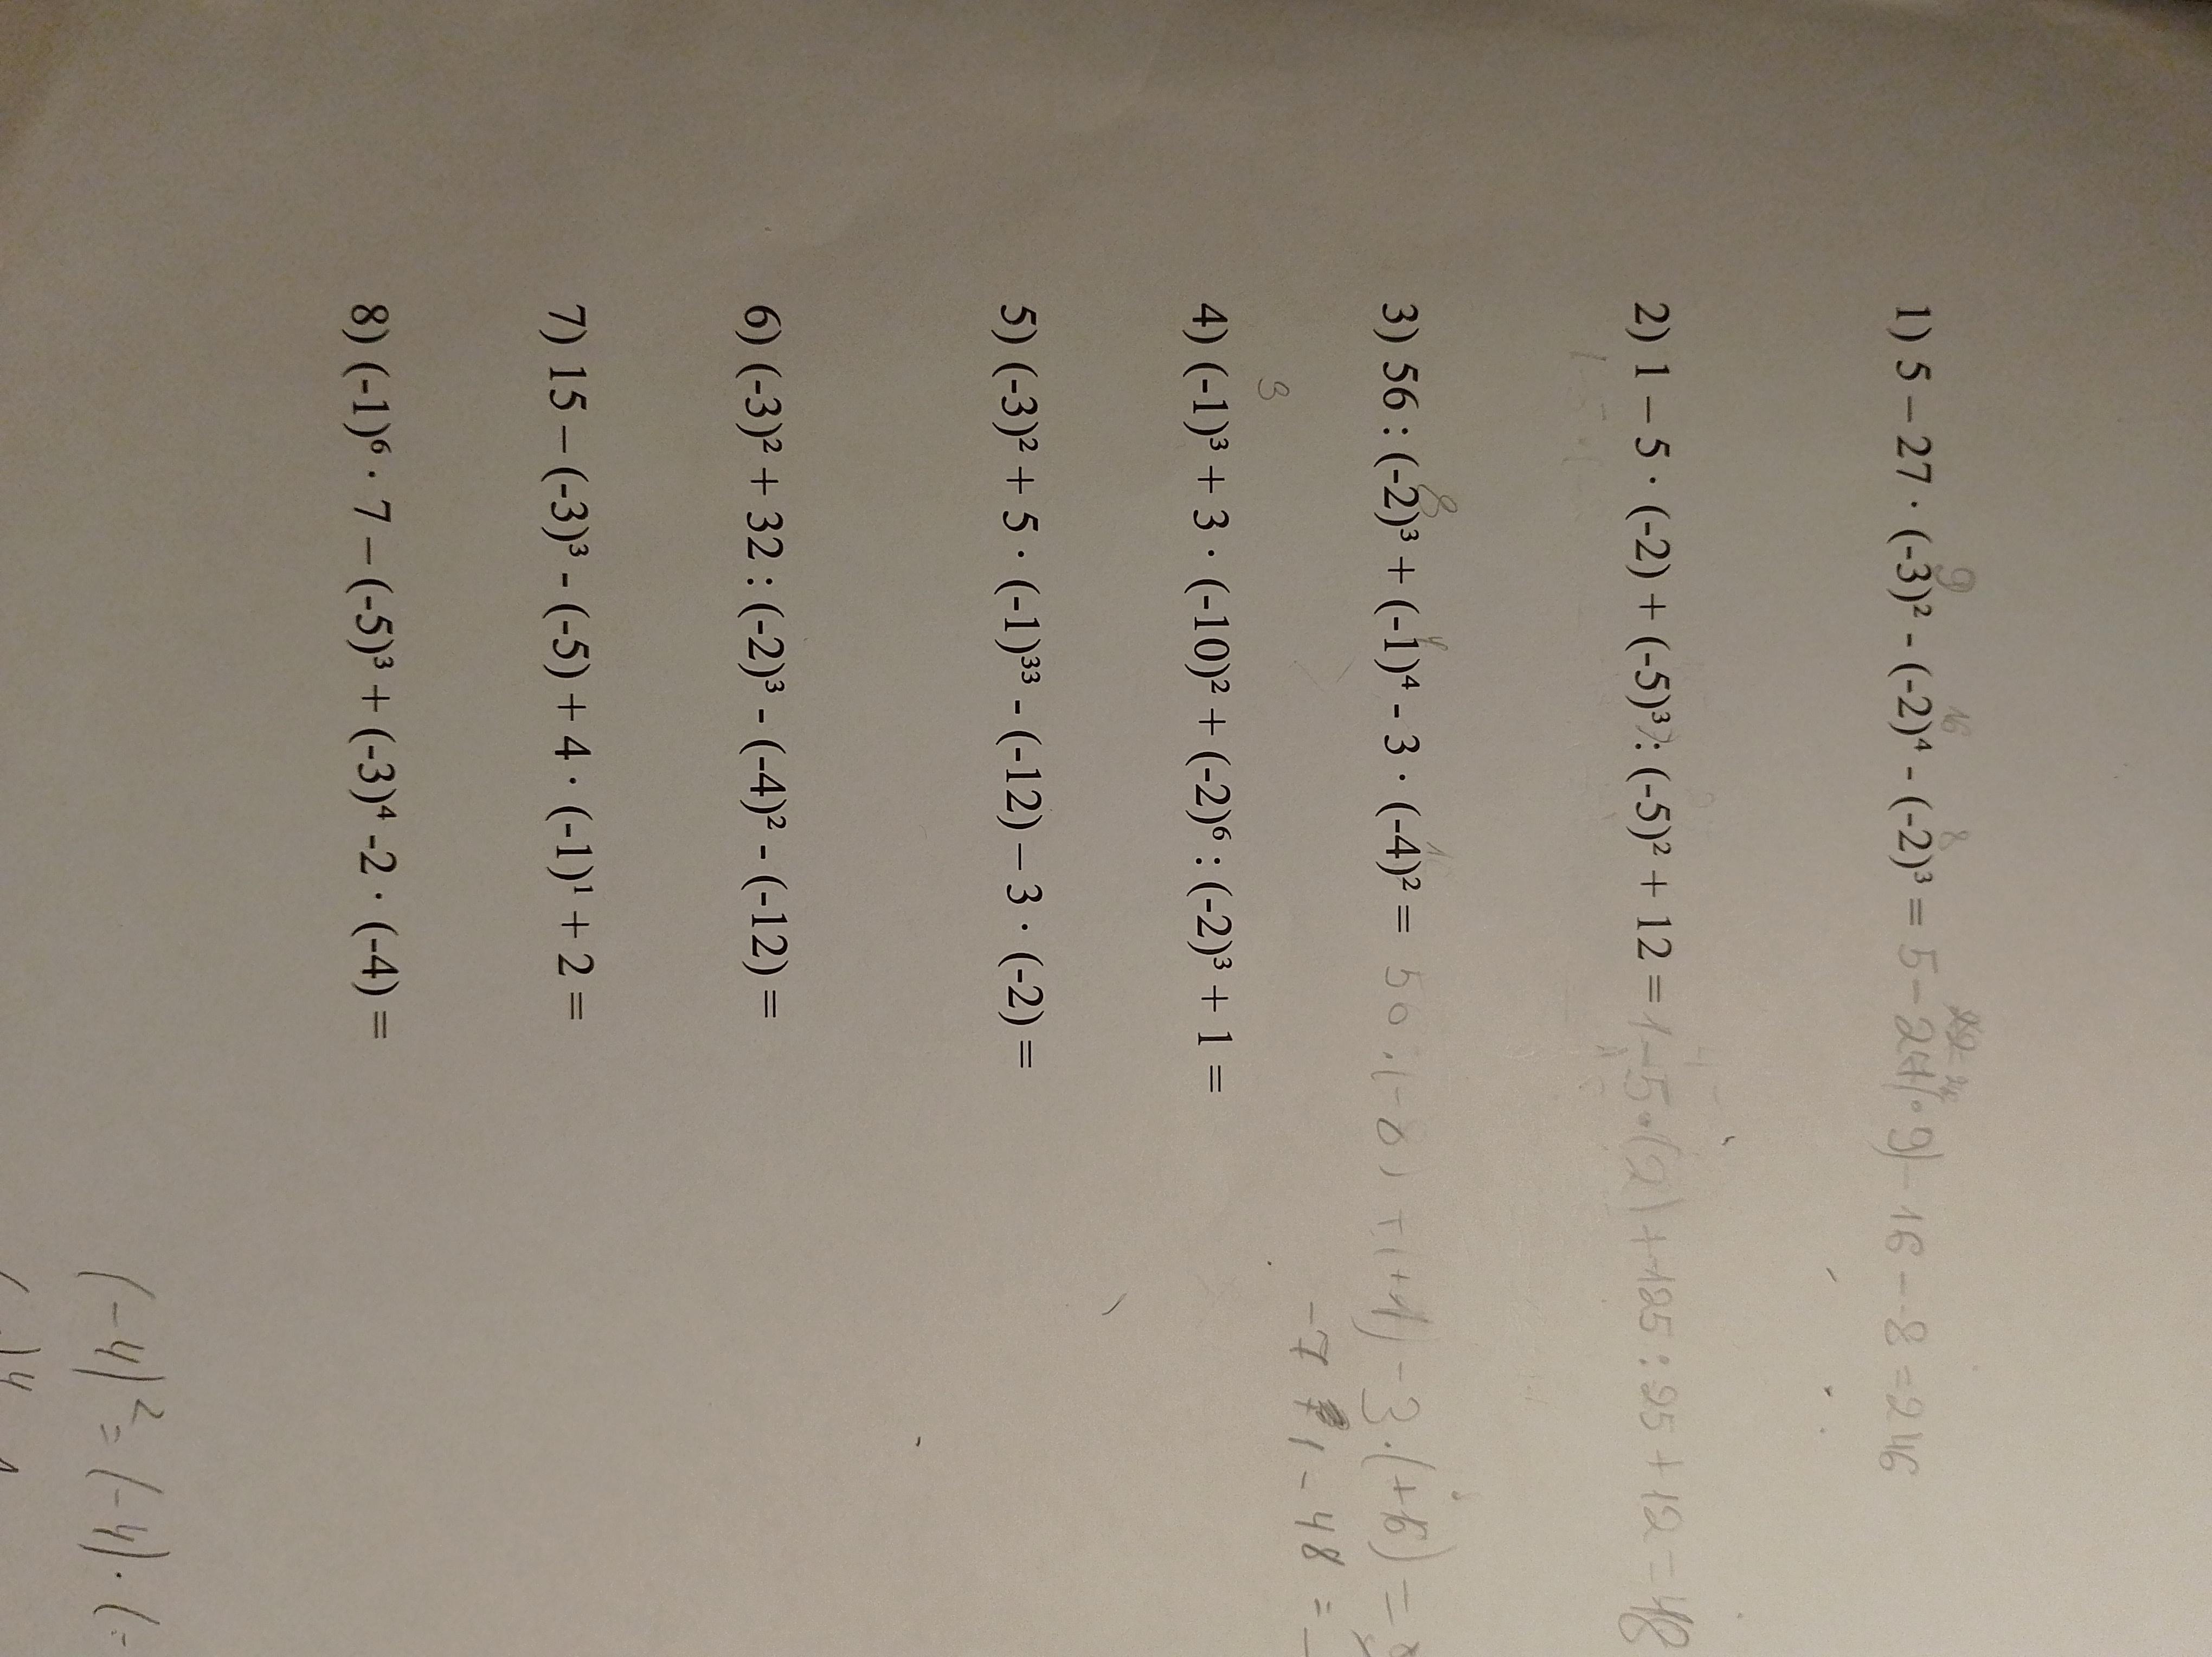 1) 5 – 27 · (-3)² - (-2)⁴ - (-2)³ = 5 – 27 · 9) - 16 - -8 = 246
9 16 8
2) 1 – 5 · (-2) + (-5)³ : (-5)² + 12 = 1 - 5 · (2) + 125 : 25 + 12 = 18
3) 56 : (-2)³ + (-1)⁴ - 3 · (-4)² = 56 : (-8) + (+1) - 3 · (+16) =
8
-7 1 - 48 = -
3
4) (-1)³ + 3 · (-10)² + (-2)⁶ : (-2)³ + 1 =
5) (-3)² + 5 · (-1)³³ - (-12) – 3 · (-2) =
6) (-3)² + 32 : (-2)³ - (-4)² - (-12) =
7) 15 – (-3)³ - (-5) + 4 · (-1)¹ + 2 =
8) (-1)⁶ · 7 – (-5)³ + (-3)⁴ -2 · (-4) =
(-4)² = (-4) · (-